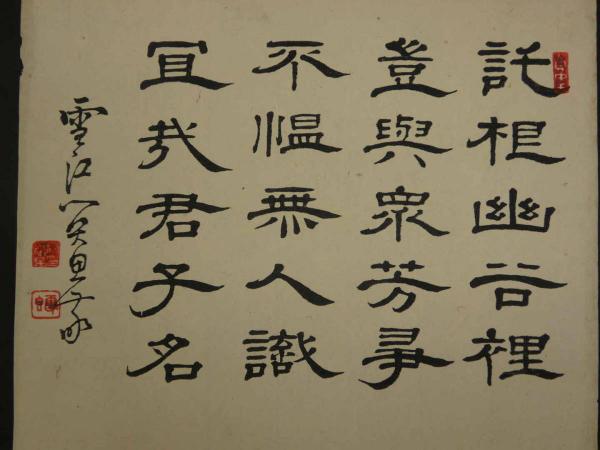 託根幽谷裡
豈與衆芳爭
不慍無人識
宜哉君子名
雪江關思敬